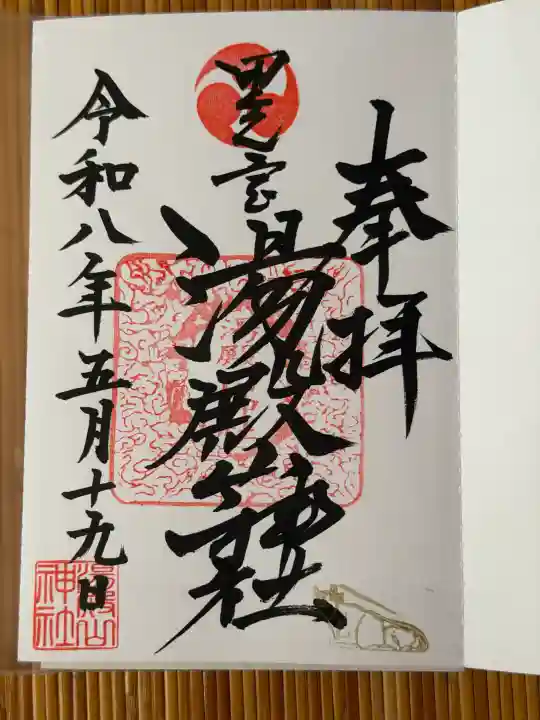 奉拝
里之宮
湯殿山神社
令和八年五月十九日
湯殿山
神社